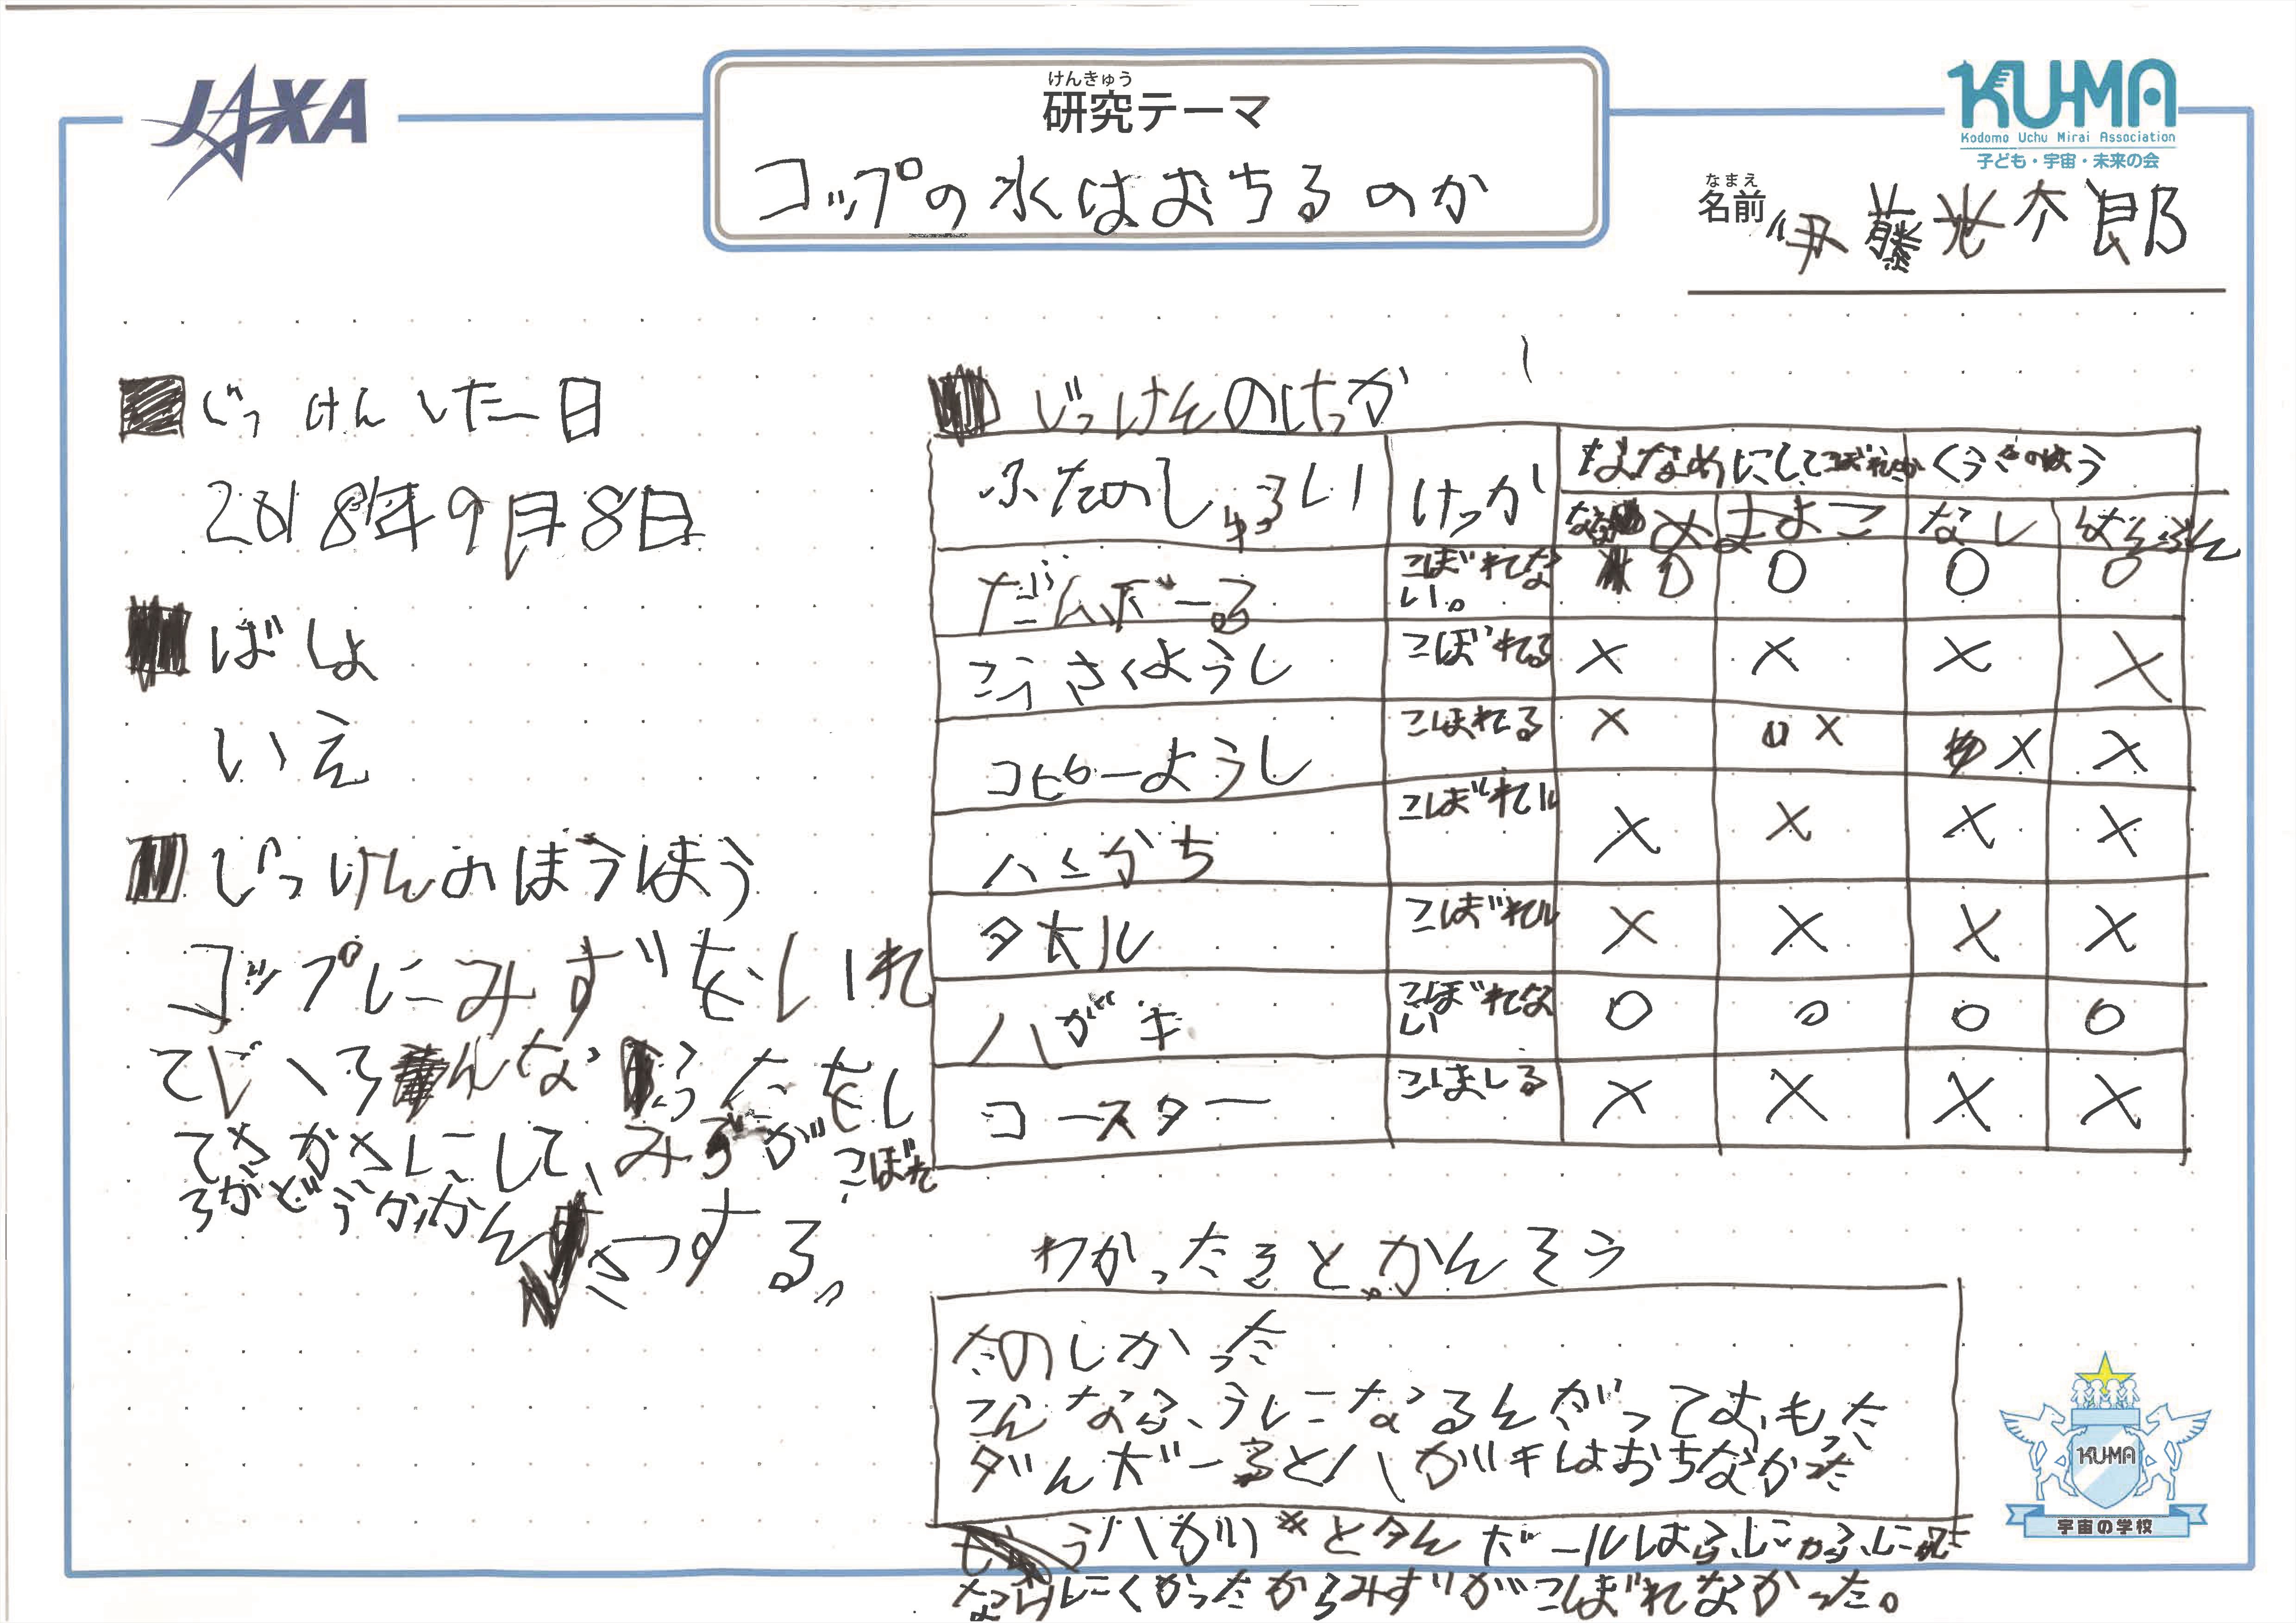 JAXA
けんきゅう
研究テーマ
コップの水はおちるのか
KU-MA
Kodomo Uchu Mirai Association
子ども・宇宙・未来の会
なまえ
名前 伊藤光太郎
じっけんした日
2018年9月8日
ばしょ
いえ
じっけんのほうほう
コップにみずをいれ
てじいろんなふたをし
てさかさにして、みずがこぼれ
るかどうかかんさつする。
じっけんのけっか
ふたのしゅるい けっか ななめにしてこぼれるか くうきのほう
ななめ まよこ なし はんぶん
だんボーる こぼれない。 〇 〇 〇 〇
こうさくようし こぼれる × × × ×
コピーようし こぼれる × × × ×
ハンかち こぼれル × × × ×
タオル こぼれル × × × ×
ハガキ こぼれない 〇 〇 〇 〇
コースター こぼれる × × × ×
わかったこと かんそう
たのしかった
こんなふうになるんだっておもった
ダんボーるとハガキはおちなかった
ハガキとダんボールはふにゃふにゃに
なりにくかったからみずがこぼれなかった。
KU-MA
宇宙の学校